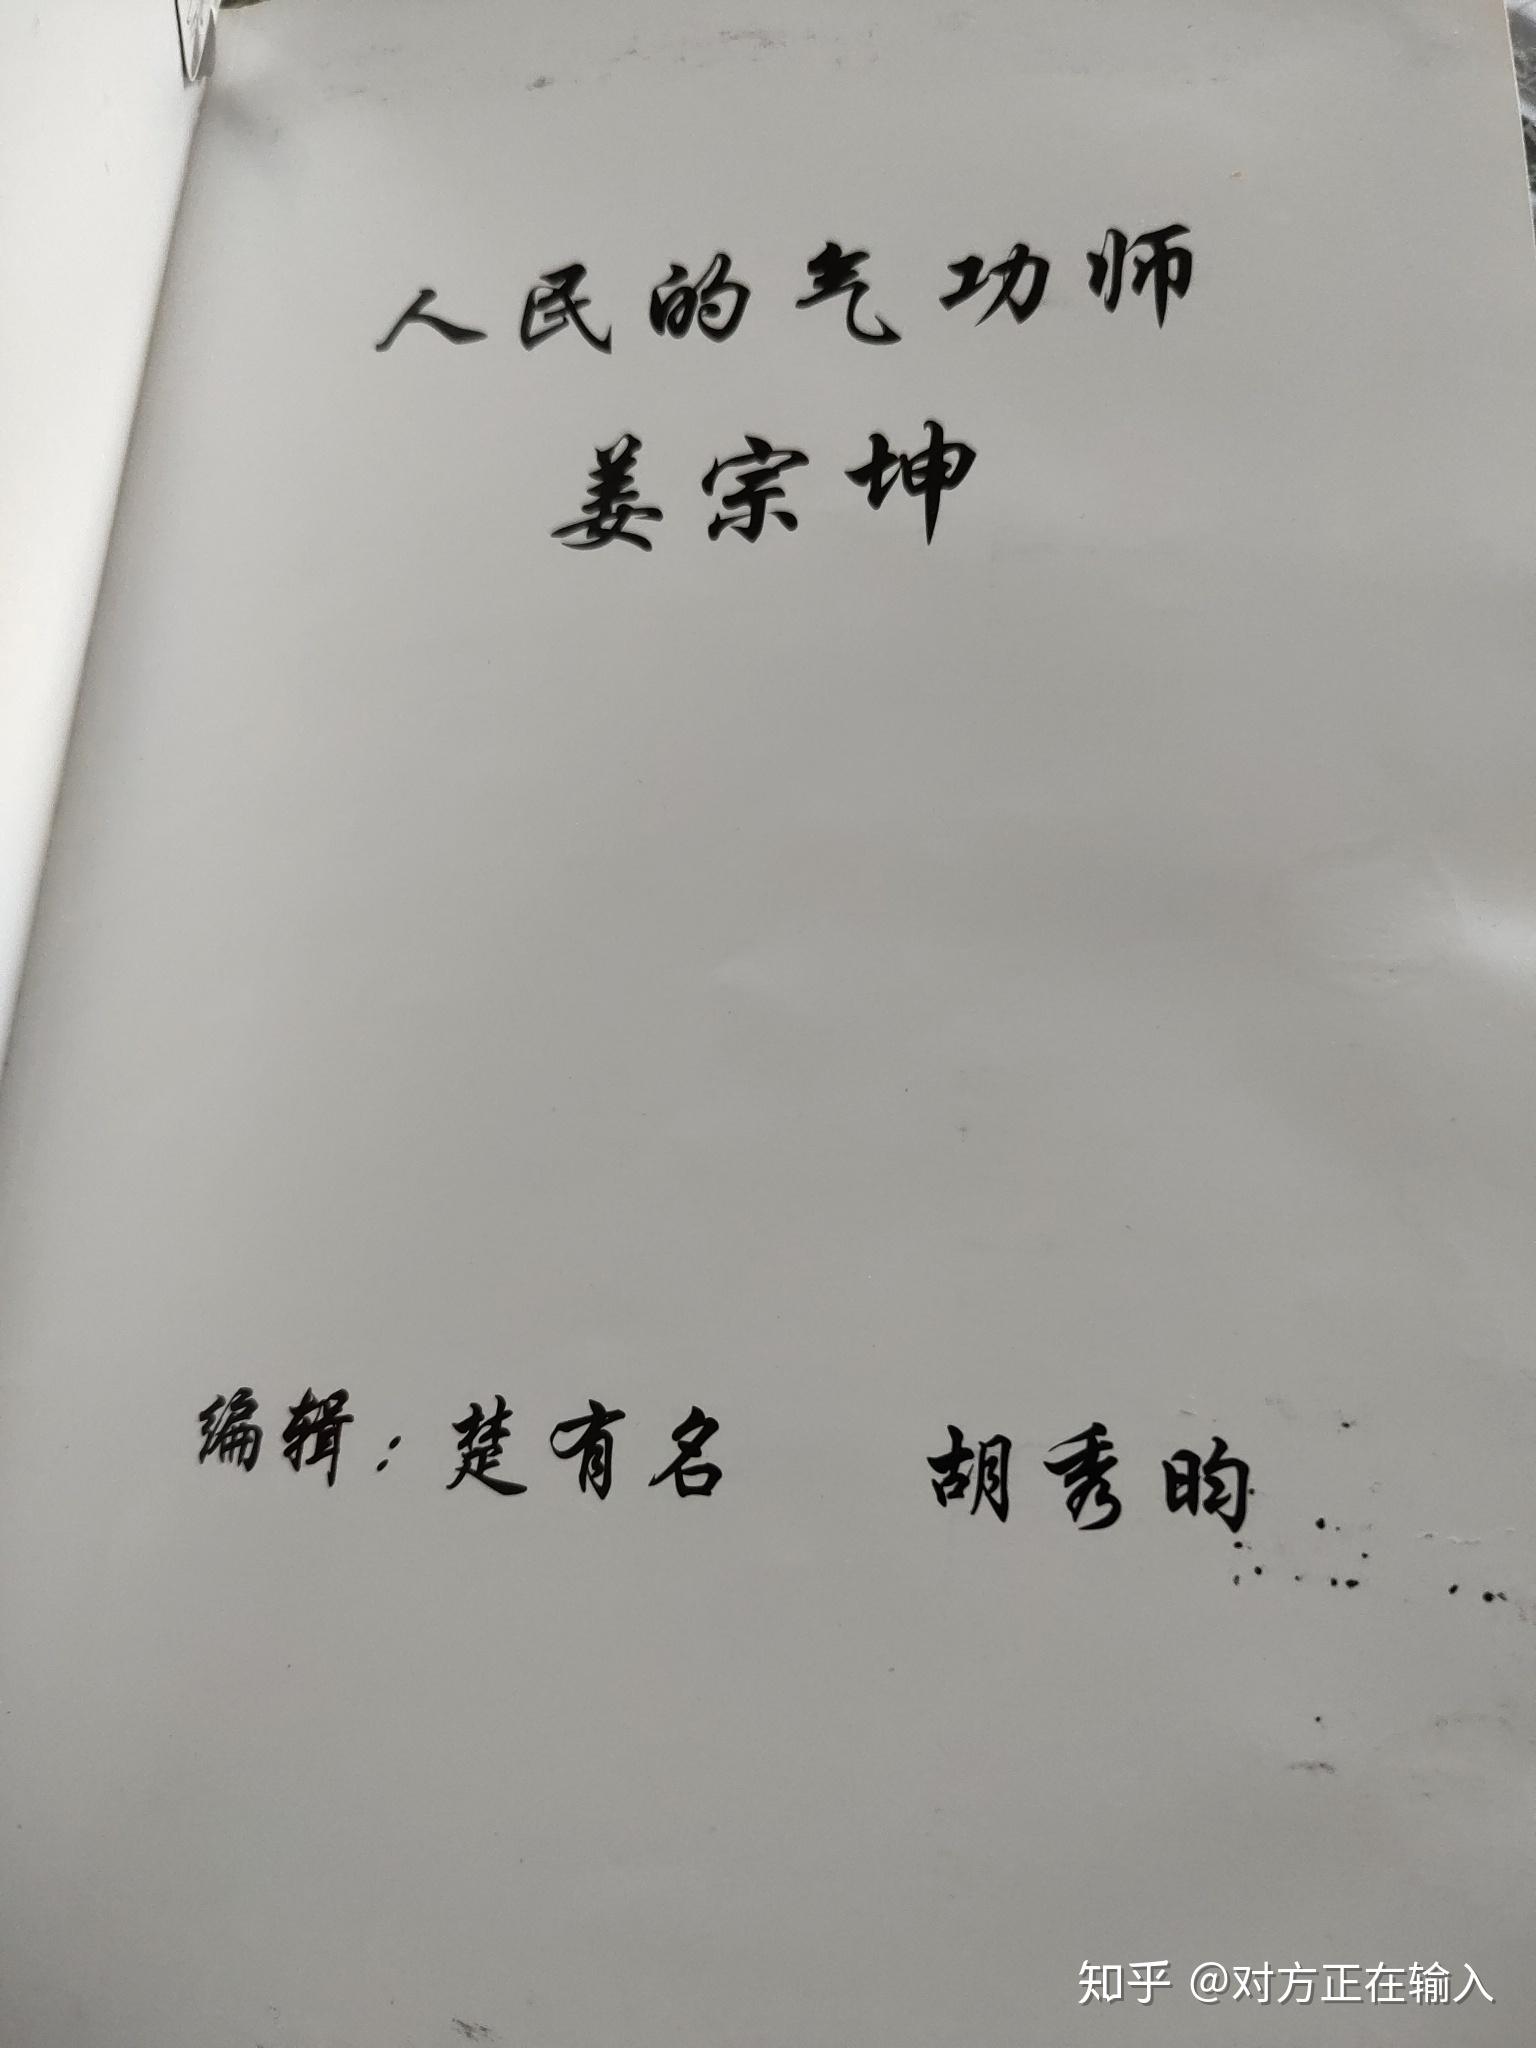 人民的气功师
姜宗坤
编辑：楚有名 胡秀昀
知乎 @对方正在输入